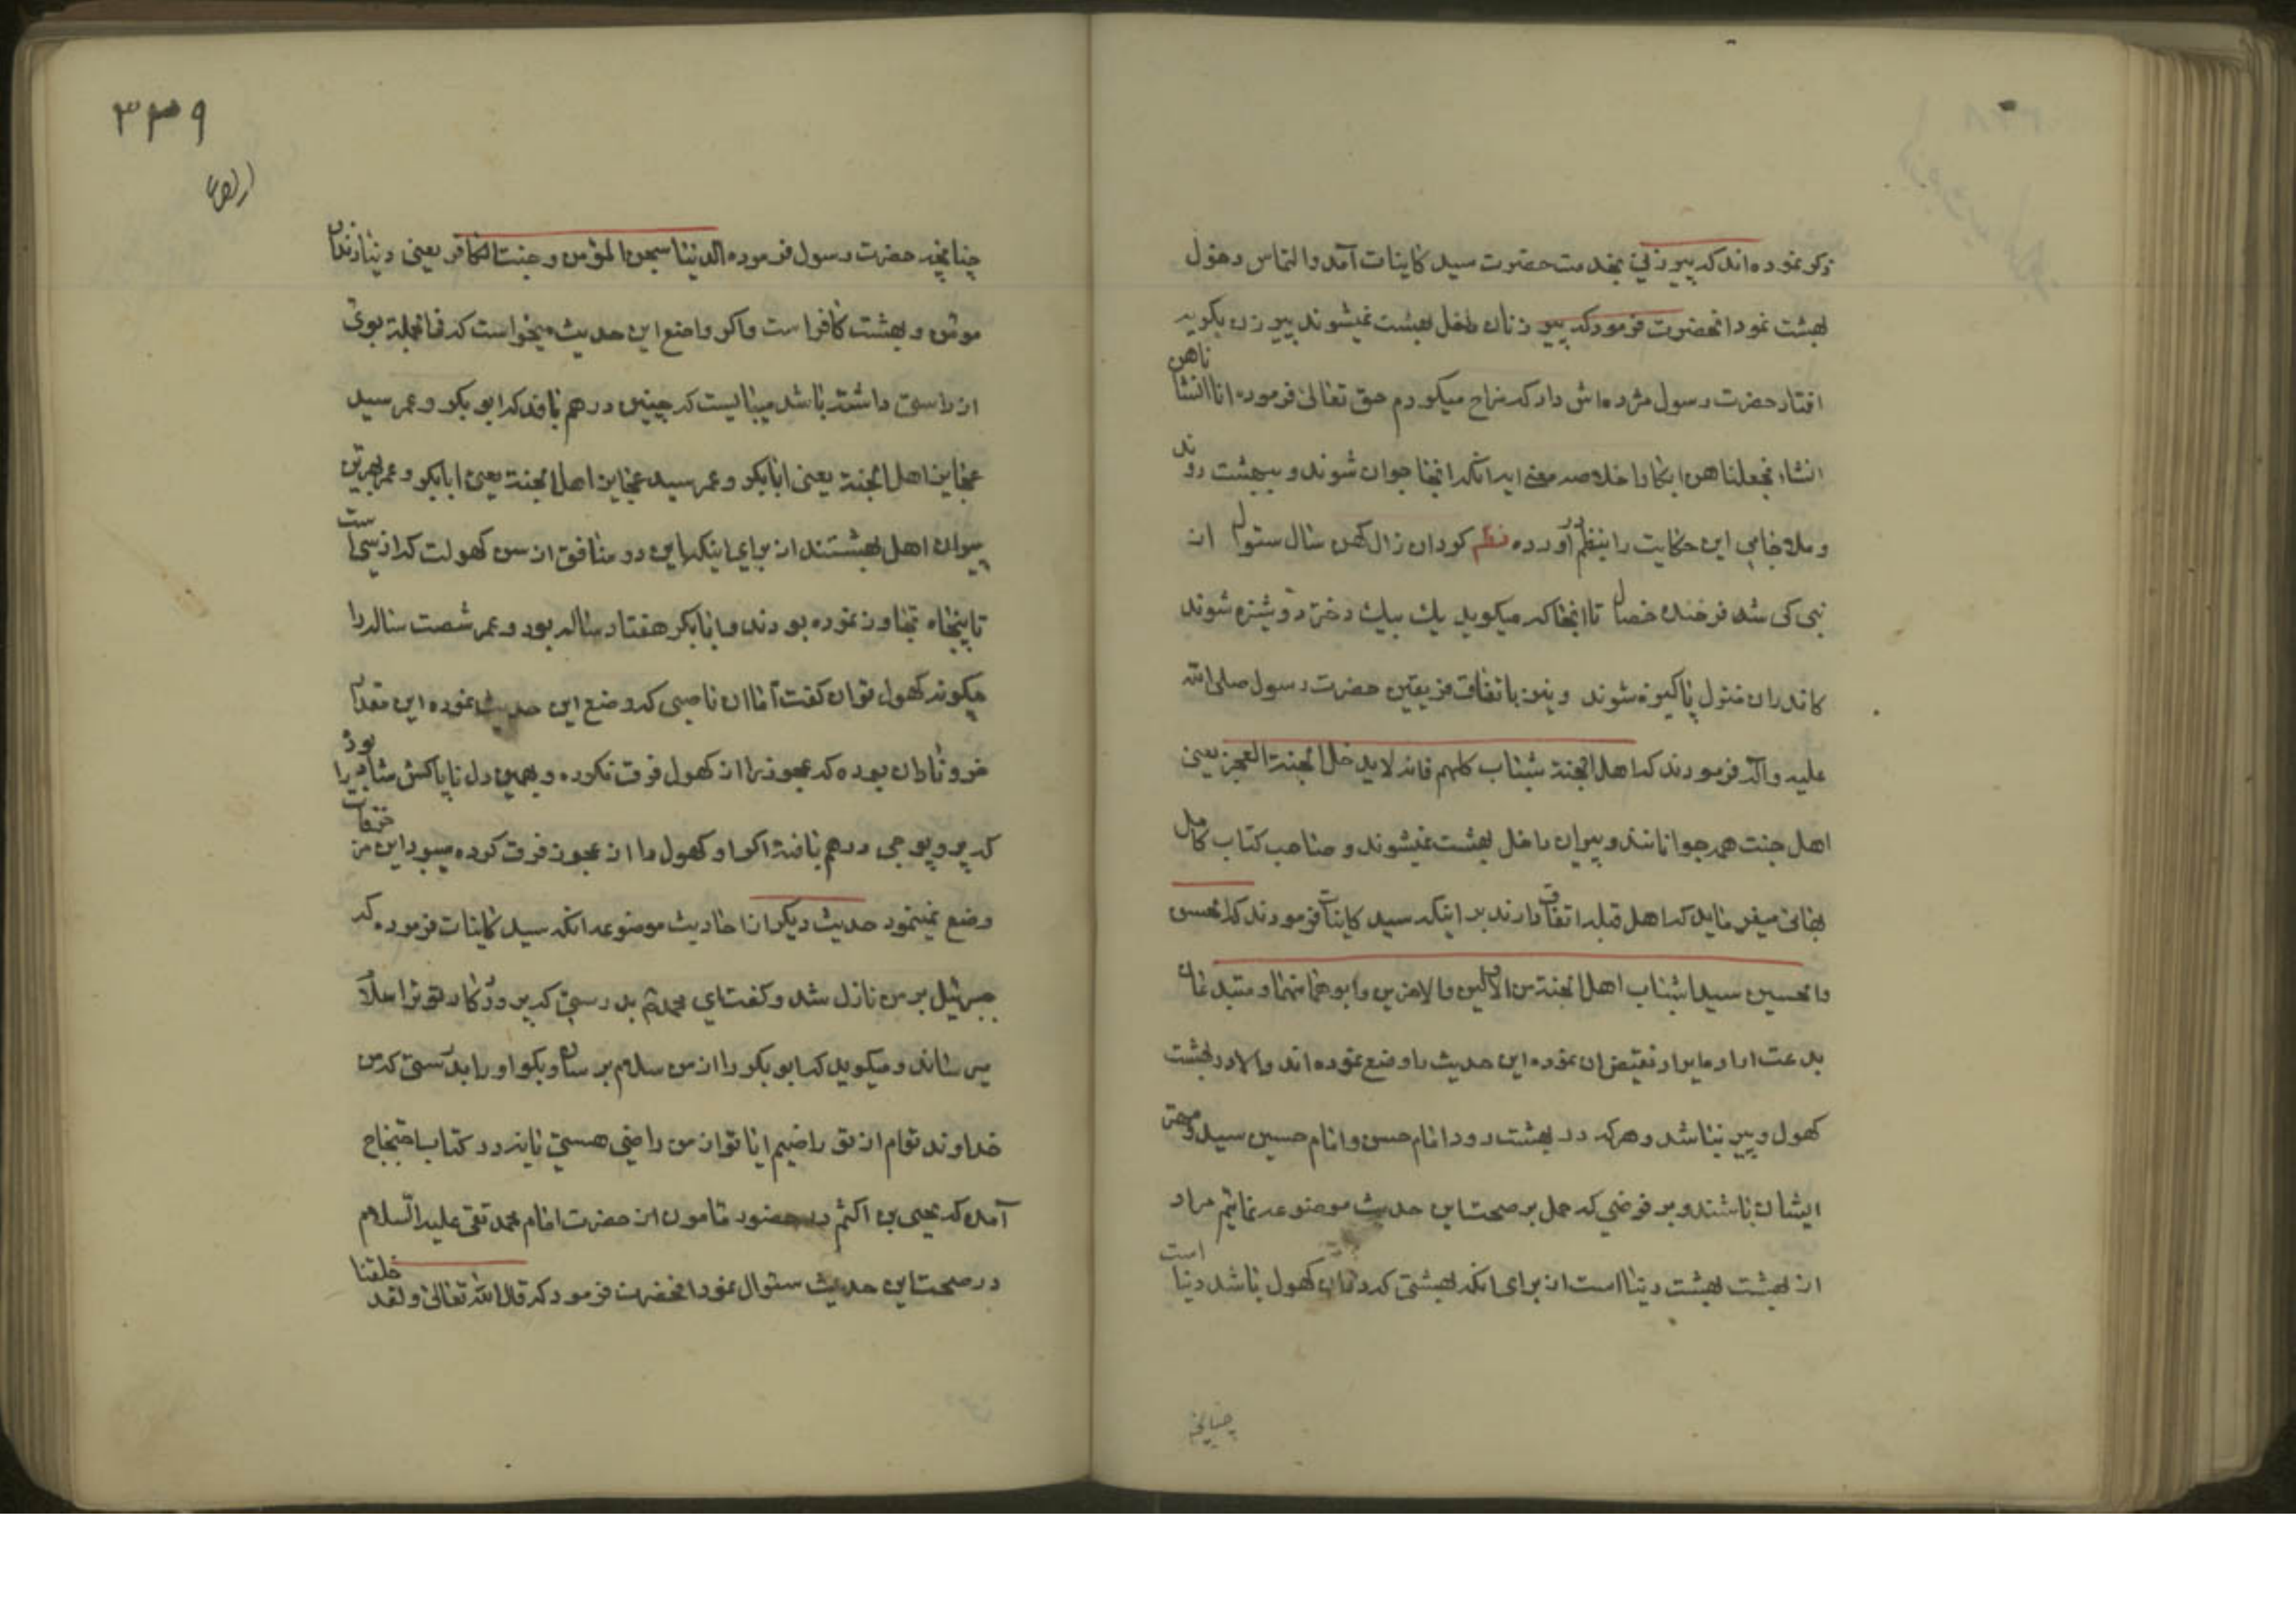 ذکر نموده‌اند که پیر زنی بخدمت حضرت سید کاینات آمد و التماس دخول
بهشت نمود انحضرت فرمود که پیر زنان داخل بهشت نمیشوند پیر زن بگریه
افتاد حضرت رسول مژده‌اش داد که مزاح میکردم حق تعالی فرموده انا انشاناهن
انشاء فجعلناهن ابکارا خلاصه معنی اید انکه انجا جوان شوند و ببهشت روند
و ملا جامی این حکایت را بنظم در آورده نظم کرد ان زال کهن سال سئوال از
نبی کی شه فرخنده خصال تا انجا که میکوید یک بیک دختر دوشیزه شوند
کاندران منزل پاکیزه شوند و نیز باتفاق فریقین حضرت رسول صلی الله
علیه و آله فرمودند که اهل الجنة شباب کلهم فانه لا یدخل الجنة العجز یعنی
اهل جنت همه جوانانند و پیران داخل بهشت نمیشوند و صاحب کتاب کامل
بهائی میفرماید که اهل قبله اتفاق دارند بر اینکه سید کاینات فرمودند که الحسن
والحسین سیدا شباب اهل الجنة من الاولین والاخرین و ابوهما منهما و متبدعان
بدعت اراد مایراد نقیض ان نموده این حدیث را وضع نموده‌اند والا در بهشت
کهول و پیر نباشد و هر که در بهشت رود امام حسن و امام حسین سید و مهتر
ایشان باشند و بر فرضی که حمل بر صحت این حدیث موضوعه نمائیم مراد
از بهشت بهشت دنیا است از برای انکه بهشتی که در ان کهول باشد دنیا است
چنانچه
۳۳۹
چنانچه حضرت رسول فرموده الدنیا سجن المؤمن و جنت الکافر یعنی دنیا زندان
مومن و بهشت کافر است و اکر واضع این حدیث میخواست که فی الجمله بوی
از راستی داشته باشد میبایست که چنین در هم بافد که ابو بکر و عمر سید
عجاین اهل الجنة یعنی ابابکر و عمر سید عجاین اهل الجنة یعنی ابابکر و عمر بهترین
پیران اهل بهشتند از برای اینکه این دو منافق از سن کهولت که از سی است
تا پنجاه تجاوز نموده بودند و ابابکر هفتاد ساله بود و عمر شصت ساله را
چکونه کهول توان کفت اما ان ناصبی که وضع این حدیث نموده این مقدار
خر و نادان بوده که عجوز را از کهول فرق نکرده و بهمین دل ناپاکش شاد بود
که پر و پوچی در هم بافته اکر او کهول را از عجوز فرق کرده میبود این مزخرفات را
وضع نمینمود حدیث دیکر از احادیث موضوعه انکه سید کاینات فرموده که
جبرئیل بر من نازل شد و کفت ای محمد بدرستی که پروردکار تو ترا سلام
میرساند و میکوید که ابو بکر را از من سلام برسان و بکو او را بدرستی که من
خداوند توام از تو راضیم ایا تو از من راضی هستی یا نه و در کتاب احتجاج
آمده که یحیی بن اکثم در حضور مامون از حضرت امام محمد تقی علیه السلام
در صحت این حدیث سئوال نمود انحضرت فرمود که قال الله تعالی و لقد خلقنا